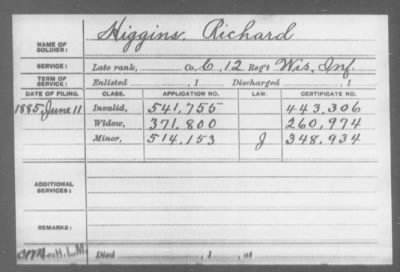 Higgins, Richard
NAME OF SOLDIER:
SERVICE: Late rank, Co. C, 12 Reg't Wis. Inf.
TERM OF SERVICE: Enlisted , 1 Discharged , 1
DATE OF FILING. CLASS. APPLICATION NO. LAW. CERTIFICATE NO.
1885, June 11 Invalid, 541,755 443,306
Widow, 371,800 260,974
Minor, 514,153 J 348,934
ADDITIONAL SERVICES:
REMARKS:
H.L.M. Died , 1 , at